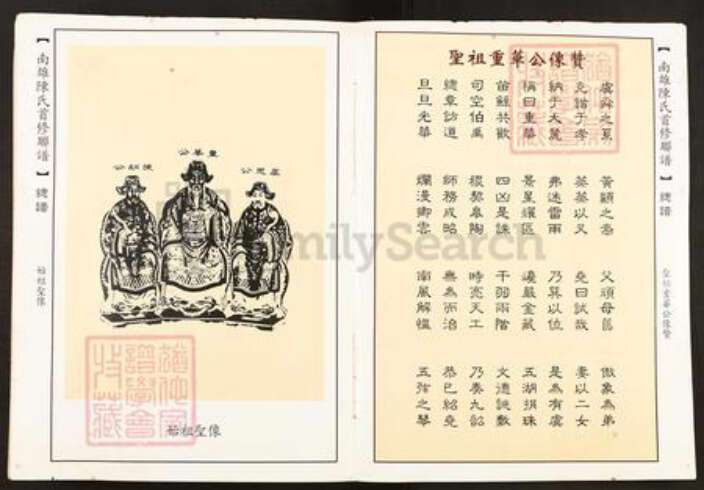 【南雄陳氏首修聯譜】總譜
聖祖重華公像贊
聖祖重華公像贊
虞舜之 黃顓之裔 父頑母嚚 傲象為弟
克諧于孝 蒸蒸以乂 堯曰試哉 妻以二女
納于大麓 弗迷雷雨 乃巽以位 是為有虞
稱曰重華 景星耀區 巉巖金藏 五湖捐珠
苗鯀共歡 四凶是誅 干羽兩階 文德誕敷
司空伯禹 稷契皋陶 時亮天工 乃奏九韶
總章訪道 師務成昭 無為而治 恭己紹堯
旦旦光華 爛漫卿雲 南風解慍 五弦之琴
猶他家譜學會特藏
虞思公
重華公
陳胡公
始祖聖像
猶他家譜學會特藏
【南雄陳氏首修聯譜】總譜
始祖聖像
FamilySearch